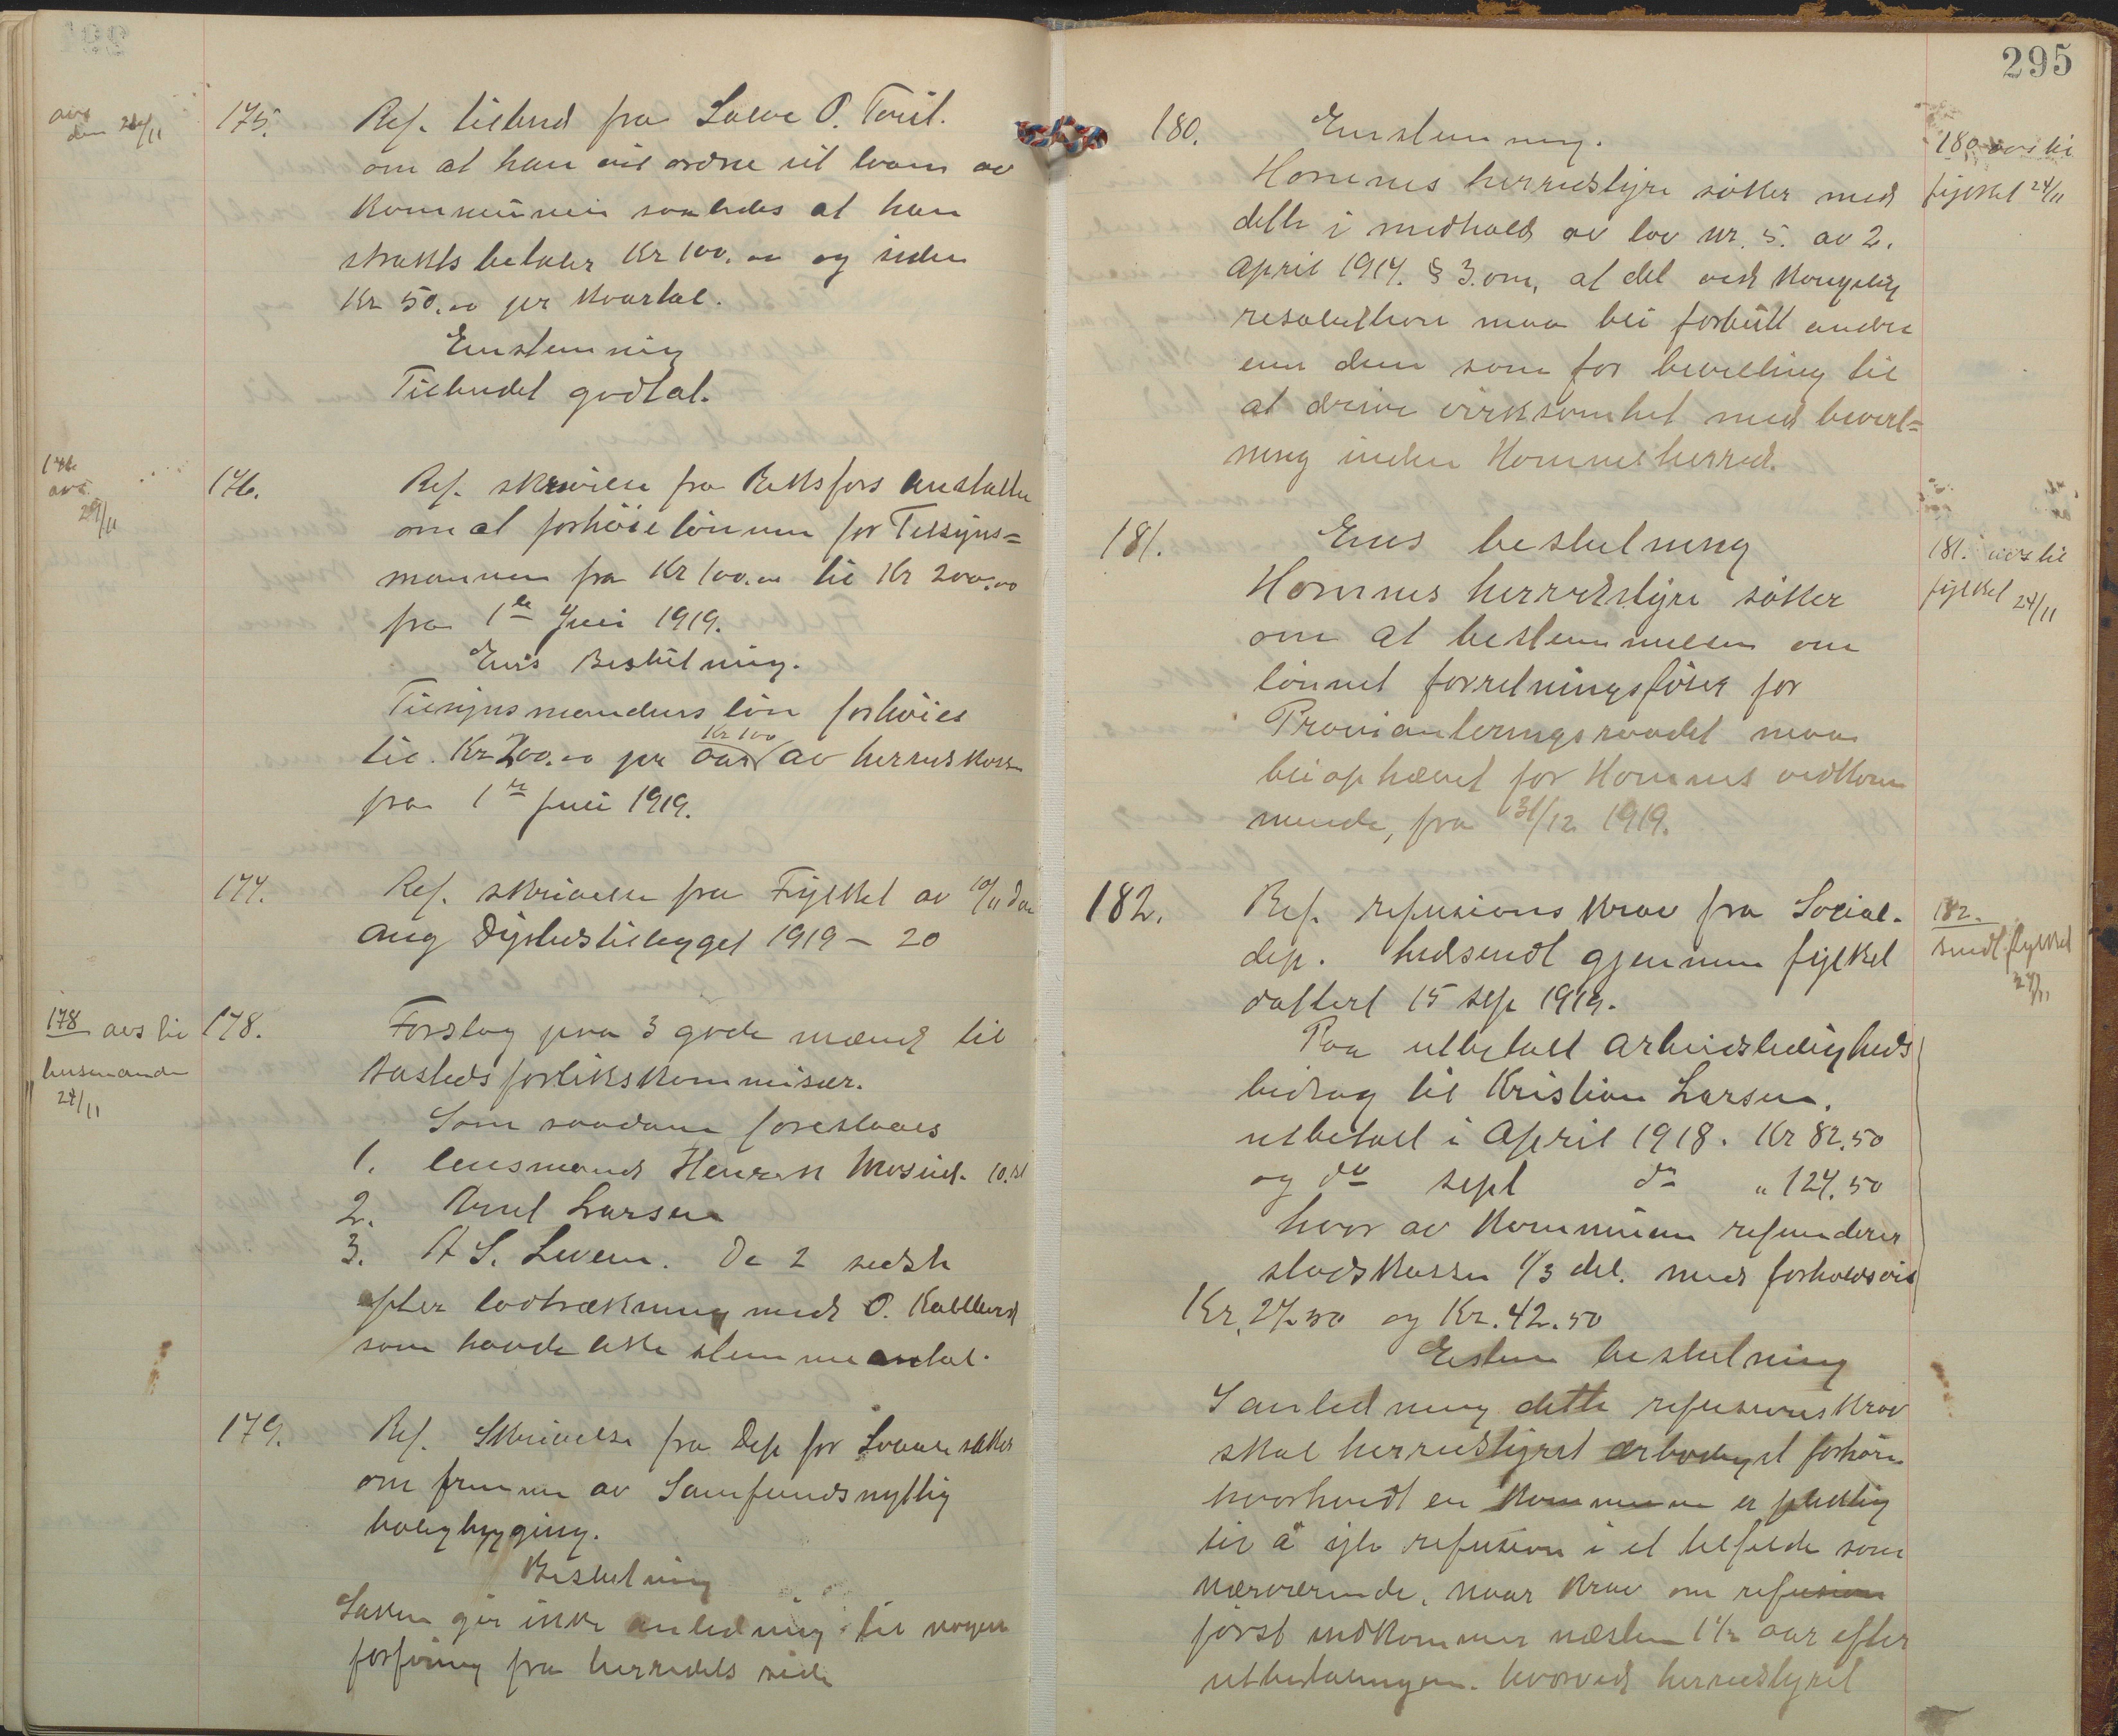 avs
den 24/11
175. Ref. tilbud fra Salve O. Tveit.
om at han vil ordne sit laan av
Kommunen saaledes at han
strakts betaler Kr 100.00 og siden
Kr 50.00 per Kvartal.
Enstemmig
Tilbudet godtat.
176
avs.
29/11
176. Ref. skrivelse fra anstalter
om at forhöie lönnen for Tilsyns=
mannen fra Kr 100.00 til Kr 200.00
fra 1ste Juli 1919.
Ens Beslutning.
Tilsynsmandens lön forhöies
til Kr 200.00 per aar Kr 100 av herredskassen
fra 1ste Juli 1919.
177. Ref. skrivelse fra Fylket av 10/11 ds
ang Dyrtidstillegget 1919 – 20
178 avs til
husmands
24/11
178. Forslag paa 3 gode mænd til
Aasteds forlikskommisær.
Som saadane foreslaaes
1. lensmand Henrik Mosvid. 10. st
2. Arnt Larsen
3. A S. Leveen. De 2 sidste
efter lodtrækning med O. Kalleberg
som havde like stemmeantal.
179. Ref. Skrivelse fra Dep for Sociale saker
om fremme av Samfundsnyttig
boligbygging.
Beslutning
Saken gir ikke anledning til nogen
forföining fra herredets side
295
180. Enstemmig.
Hommes herredstyre söker med
dette i medhold av lov nr. 5. av 2.
April 1917. § 3. om, at det ved Kongelig
resolution maa bli forbutt andre
enn dem som for bevilling til
at drive virksomhet med bevert=
ning inden Hommes herred.
180 avs til
fylket 24/11
181. Ens beslutning
Hommes herredstyre söker
om at bestemmelsen om
lönnet forretningsförer for
Provianteringsraadet maa
bli ophævet for Hommes vedkom
mende, fra 31/12 1919.
181. avs til
fylket 24/11
182. Ref. refusions krav fra Social.
dep. hidsendt gjennem fylket
daftert 15 sep 1919.
Paa utbetalt arbeidsledigheds
bidrag til Kristian Larsen.
utbetalt i April 1918. Kr 82.50
og do sept do " 127.50
hvor av Kommunen refunderer
statskassen 1/3 del. med forholdsvis
Kr. 27.50 og Kr. 42.50
Estem beslutning
I anledning dette refusionskrav
skal herredstyret ærbødigst forhöre
hvorvidt en Kommune er pliktig
til å yte refusion i et tilfelde som
nærværende, naar krav om refusion
først indkommer næsten 1½ aar efter
utbetalingen. hvorved herredstyret
182.
sendt fylket
24/11